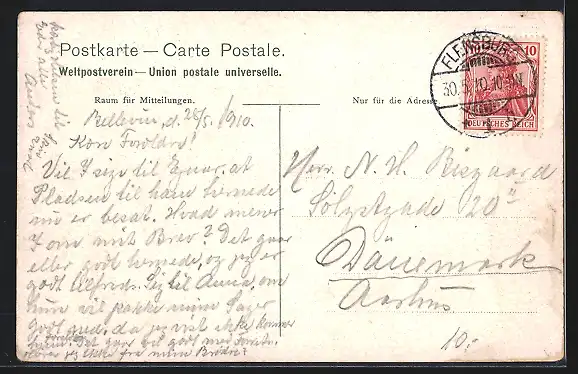 Postkarte — Carte Postale.
Weltpostverein — Union postale universelle.
Raum für Mitteilungen.
Nur für die Adresse
FLENSBURG
30.5.10.10-11N
10
DEUTSCHES REICH
Bellevue, d. 28/5. 1910.
Kære Forældre!
Vil I sige til Ejnar, at
Pladsen til ham hernede
nu er besat. Hvad mener
I om mit Brev? Det gaar
ellers godt hernede, og jeg er
godt tilfreds. Sig til Anna, om
hun vil pakke mine Sager
godt ind, da jeg vist ikke kommer
hjem. Det gaar vel godt med Forretn.
hører jeg ikke fra mine Brødre?
hilsen til
eder alle
Herr. N. H. Bisgaard
Sølystgade 20 II
Dänemark
Aarhus
10:-